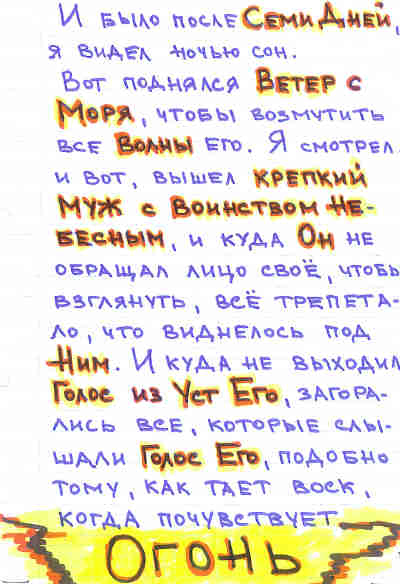 И было после Семи Дней,
я видел ночью сон.
Вот поднялся Ветер с
Моря, чтобы возмутить
все Волны его. Я смотрел
и вот, вышел крепкий
муж с Воинством Не-
бесным, и куда Он не
обращал лицо своё, чтобы
взглянуть, всё трепета-
ло, что виднелось под
Ним. И куда не выходил
Голос из Уст Его, загора-
лись все, которые слы-
шали Голос Его, подобно
тому, как тает воск,
когда почувствует
Огонь